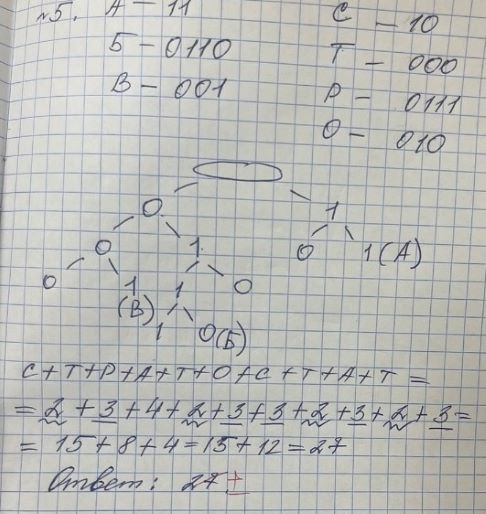 №5. А – 11
С – 10
Б – 0110
Т – 000
В – 001
Р – 0111
О – 010
0 1
0 1 0 1 (А)
0 1 1 0
(В)
1 0(Б)
С+Т+Р+А+Т+О+С+Т+А+Т =
= 2 + 3 + 4 + 2 + 3 + 3 + 2 + 3 + 2 + 3 =
= 15 + 8 + 4 = 15 + 12 = 27
Ответ: 27 ±